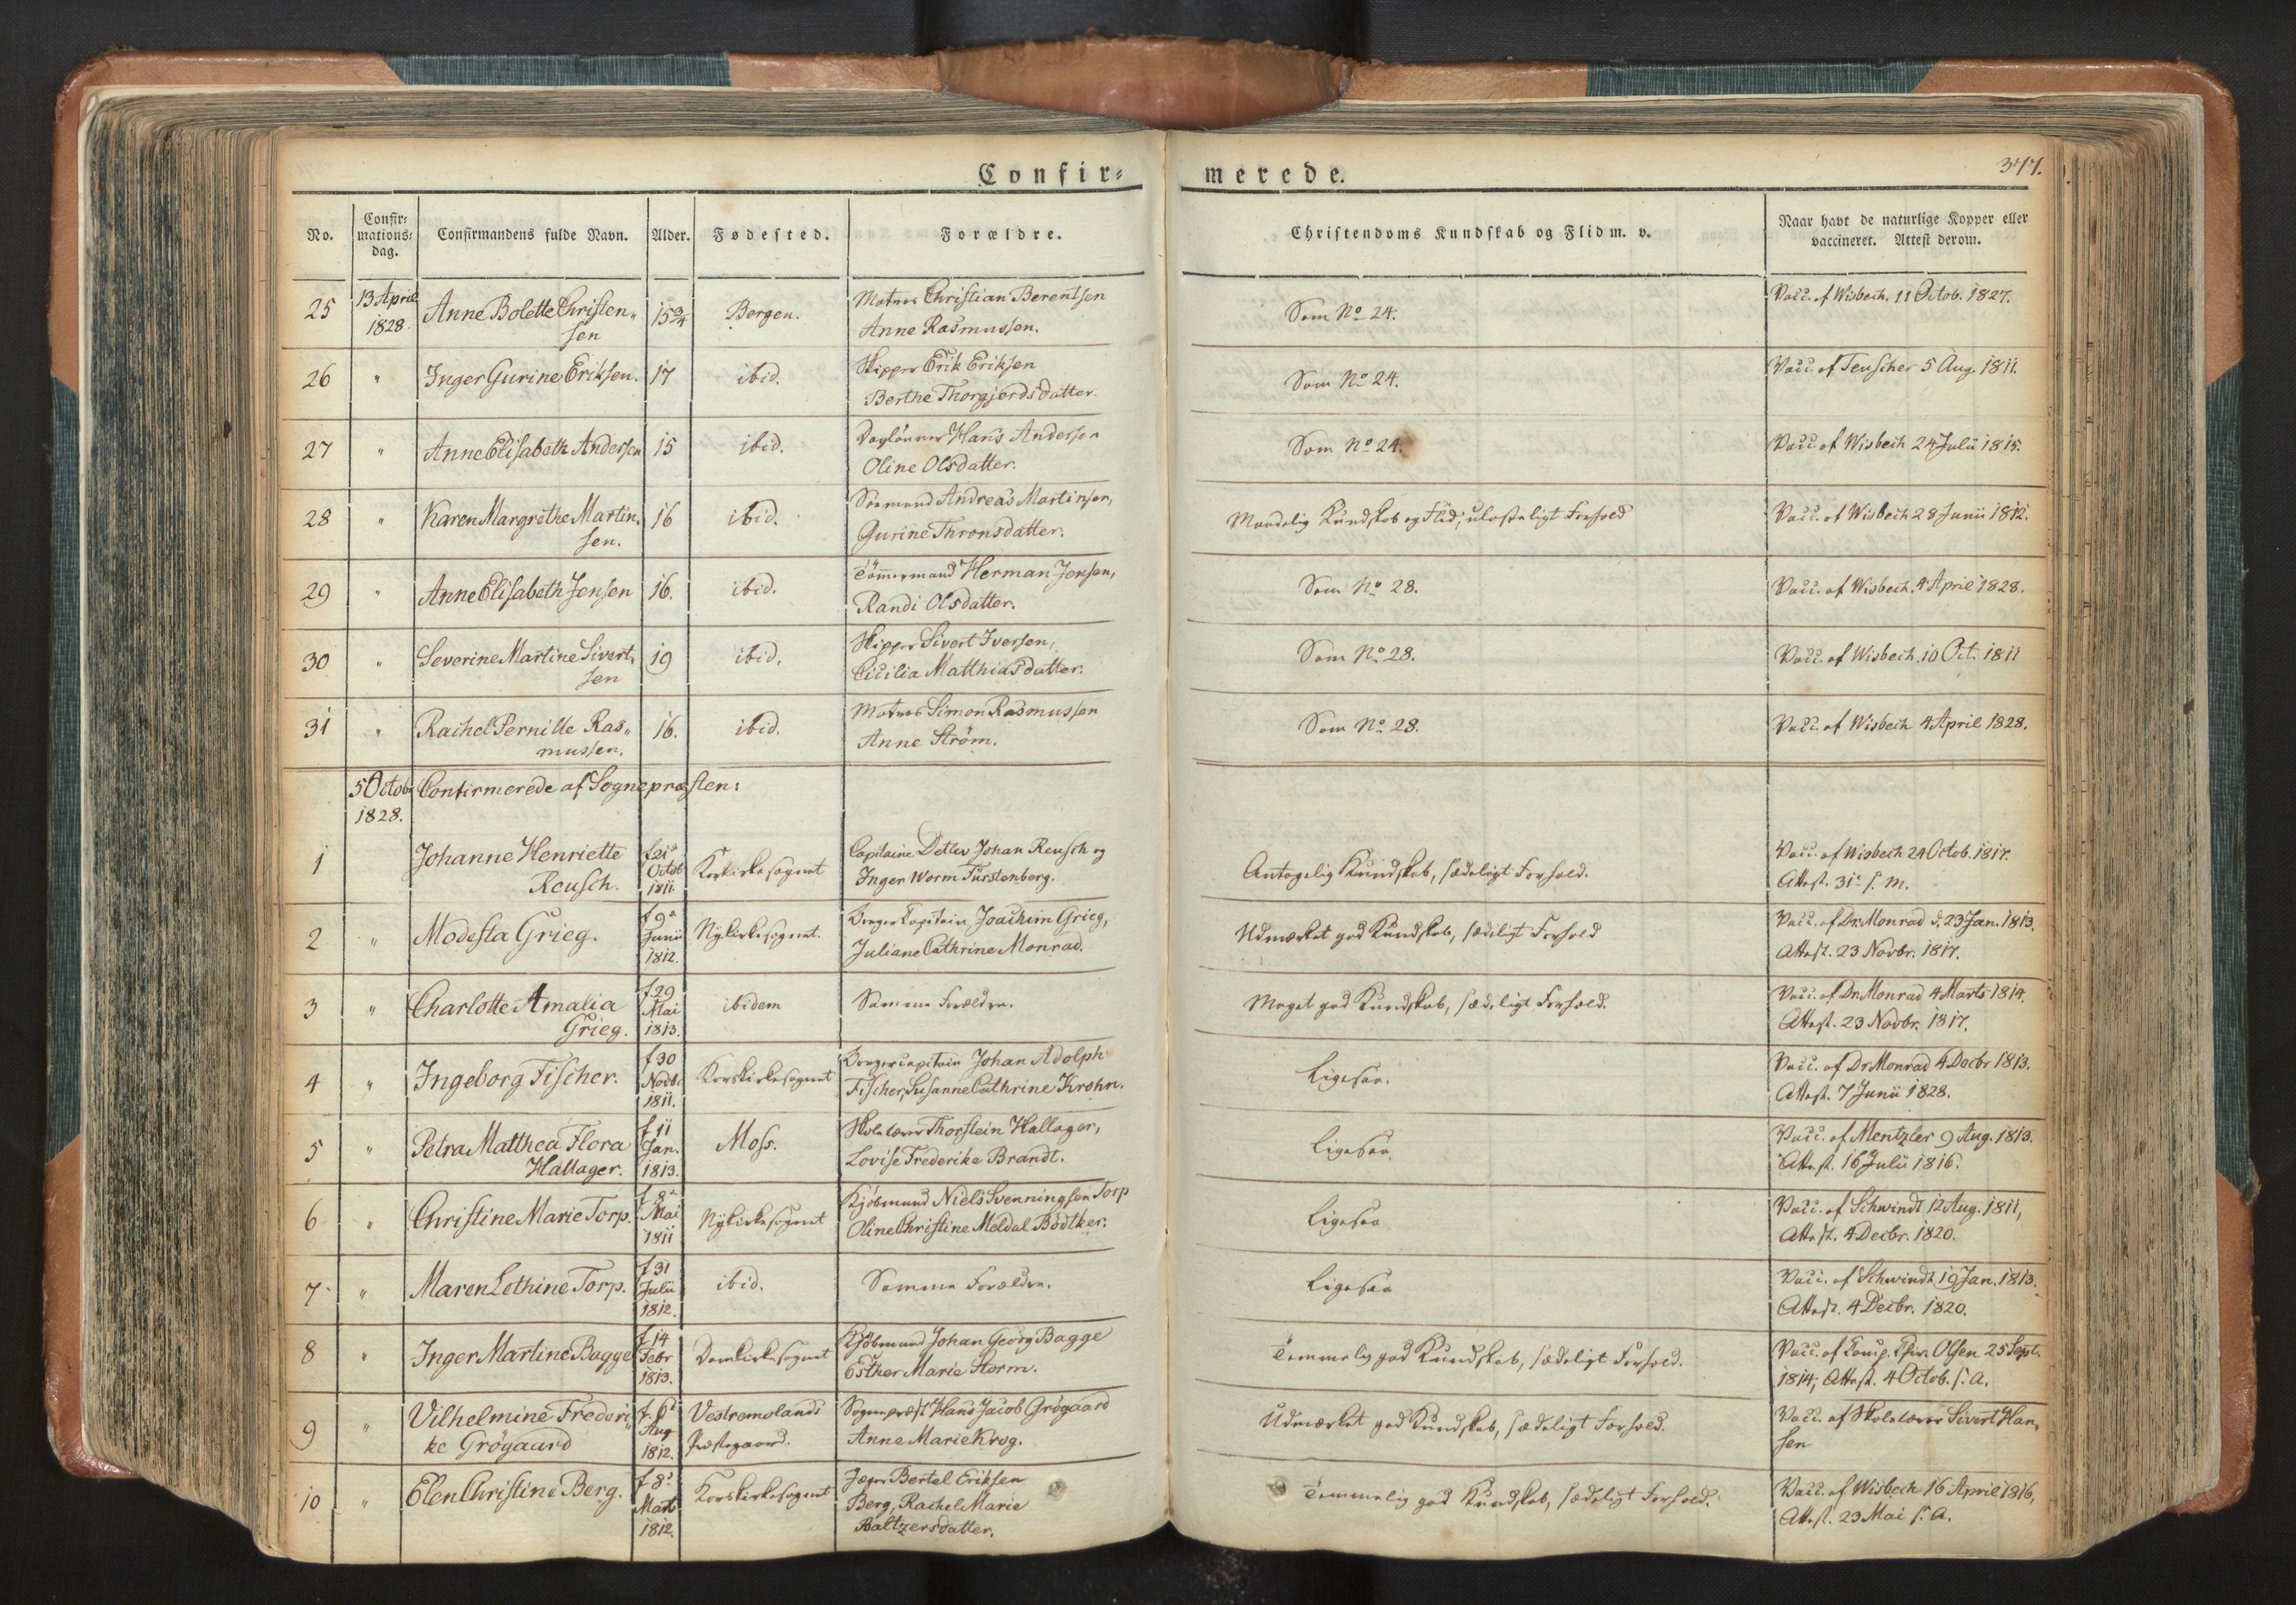 Confir=
merede.
377.
No.
Confir=
mations=
dag.
Confirmandens fulde Navn.
Alder.
Fødested.
Forældre.
Christendoms Kundskab og Flid m. v.
Naar havt de naturlige Kopper eller
vaccineret. Attest derom.
25
13 April
1828.
Anne Bolette Christen„
sen
15¾
Bergen.
Matros Christian Berentsen
Anne Rasmussen.
Som No 24.
Vacc. af Wisbech. 11 Octob. 1827.
26
"
Inger Gurine Eriksen.
17
ibid.
Skipper Erik Eriksen
Berthe Thorgjerdsdatter.
Som No 24.
Vacc. af Teuscher 5 Aug. 1811.
27
"
Anne Elisabeth Andersen
15
ibid.
Daglönner Hans Andersen
Oline Olsdatter.
Som No 24.
Vacc. af Wisbech 24 Julii 1815.
28
"
Karen Margrethe Martin„
sen.
16
ibid.
Sömand Andreas Martinsen,
Gurine Thronsdatter.
Maadelig Kundskab og Flid, ulasteligt Forhold
Vacc. af Wisbech 28 Junii 1812.
29
"
Anne Elisabeth Jensen
16.
ibid.
Tömmermand Herman Jensen,
Randi Olsdatter.
Som No 28.
Vacc. af Wisbech. 4 April 1828.
30
"
Severine Martine Sivert„
sen
19
ibid.
Skipper Sivert Iversen,
Cicilia Matthiasdatter.
Som No 28.
Vacc. af Wisbech. 10 Oct. 1811
31
"
Rachel Pernille Ras„
mussen.
16.
ibid.
Matros Simon Rasmussen
Anne Ström.
Som No 28.
Vacc. af Wisbech 4 April 1828.
5 Octob.
1828.
Confirmerede af Sognepræsten:
1
Johanne Henriette
Reusch.
f. 21de
Octob
1811.
Korskirkesognet
Capitaine Detlev Johan Reusch og
Inger Worm Fürstenberg.
Antagelig Kundskab, sædeligt Forhold.
Vacc. af Wisbech 24 Octob. 1817.
Attest. 31te s. m.
2
"
Modesta Grieg.
f 9de
Junii
1812.
Nykirkesognet.
Borger Capitain Joachim Grieg,
Juliane Cathrine Monrad.
Udmærket god Kundskab, sædeligt Forhold
Vacc. af Dr. Monrad d. 23 Jan. 1813.
Attest. 23 Novbr. 1817.
3
"
Charlotte Amalia
Grieg.
f. 29
Mai
1813.
ibidem
Samme Forældre.
Meget god Kundskab, sædeligt Forhold.
Vacc. af Dr. Monrad 4 Marts 1814.
Attest. 23 Novbr. 1817.
4
"
Ingeborg Fischer.
f 30
Novb.
1811.
Korskirkesognet
Borgercapitain Johan Adolph
Fischer, Susanne Cathrine Krohn.
Ligesaa.
Vacc. af Dr Monrad 4 Decbr 1813.
Attest. 7 Junii 1828.
5
"
Petra Matthea Flora
Hallager.
f 11
Jan.
1813.
Moss.
Skolelærer Thorstein Hallager,
Lovise Frederike Brandt.
Ligesaa.
Vacc. af Mentzler 9 Aug. 1813.
Attest. 16 Julii 1816.
6
"
Christine Marie Torp.
f 8de
Mai
1811
Nykirkesognet
Kjöbmand Niels Svenningsen Torp
Oline Christine Meldal Bödtker.
Ligesaa
Vacc. af Schwindt 12 Aug. 1811,
Attest. 4 Decbr. 1820.
7
"
Maren Lethine Torp.
f 31
Julii
1812.
ibid.
Samme Forældre.
Ligesaa
Vacc. af Schwindt 19 Jan. 1813.
Attest. 4 Decbr. 1820.
8
"
Inger Martine Bagge
f 14
Febr
1813.
Domkirkesognet
Kjöbmand Johan Georg Bagge
Esther Marie Storm.
Temmelig god Kundskab, sædeligt Forhold.
Vacc. af Comp. Chir. Olsen 25 Sept.
1814; Attest. 4 Octob. s. a.
9
"
Vilhelmine Frederi„
ke Grögaard
f. 6te
Aug
1812.
Vestremolands
Præstegaard.
Sognepræst Hans Jacob Grögaard
Anne Marie Krog.
Udmærket god Kundskab, sædeligt Forhold.
Vacc. af Skolelærer Sivert Han„
sen
10
"
Elen Christine Berg.
f 8de
Mart
1812.
Korskirkesognet
Jæger Bertel Eriksen
Berg, Rachel Marie
Baltzersdatter.
Temmelig god Kundskab, sædeligt Forhold.
Vacc. af Wisbech 16 April 1816,
Attest. 23 Mai s. a.